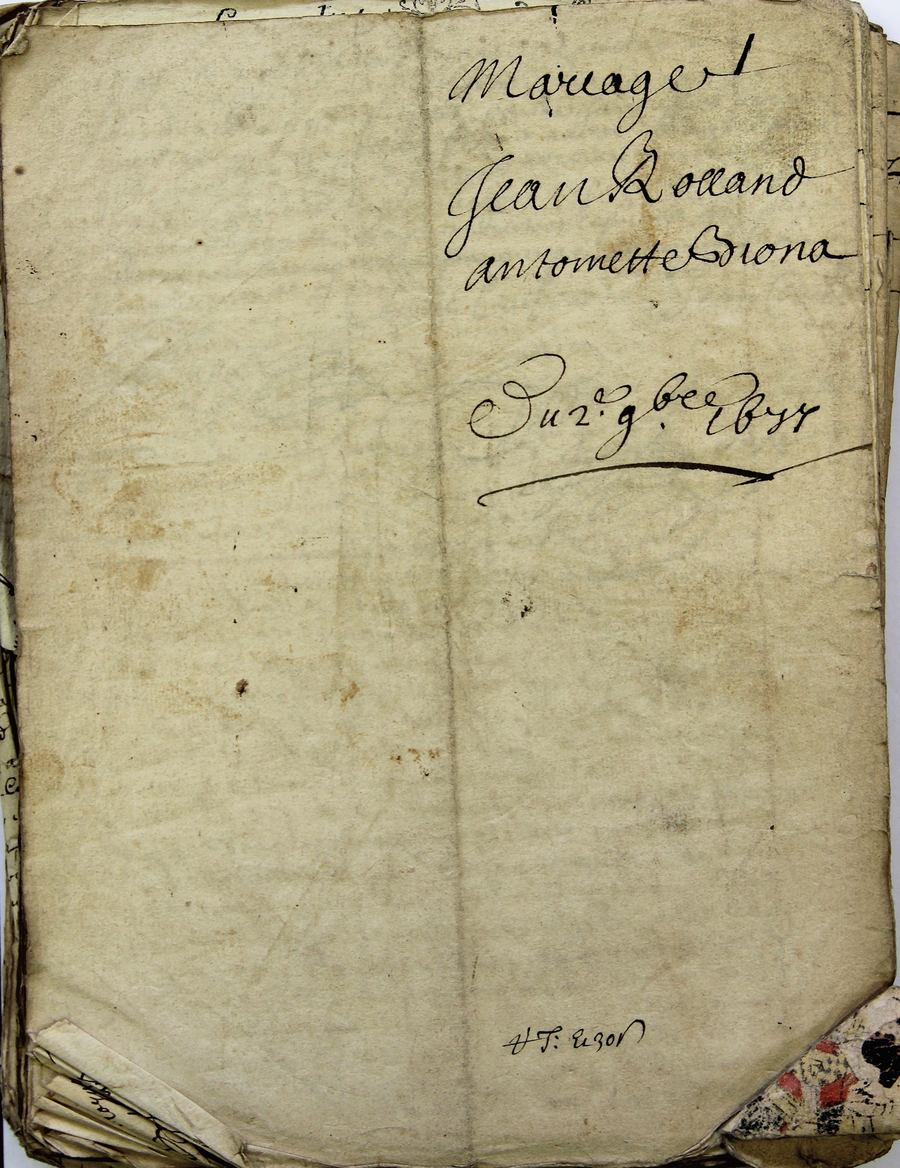 Mariage
Jean Rolland
antoinette Biona
Du 2e. 9bre 1677